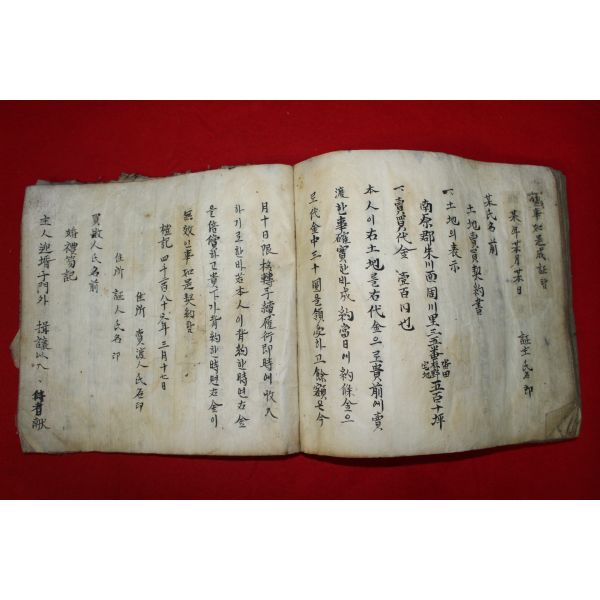 事如是成証홈
某年某月某日
証主 氏名 印
某氏名前
土地賣買契約書
一、土地의表示
南原郡朱川面周川里三五番 五百十坪
一、賣買代金 壹百円也
本人이右土地를右代金으로貴前에賣
渡한事確實한바成約當日에約條金으
로代金中三十圓을領受하고餘額은今
月十日限 移轉手續履行即時에收入
하기로한바若本人이背約한時面右金
을倍償하고貴下가背約한時面右金이
無效인事如是契約함
檀記 四千二百八十六年 三月十七日
住所 賣渡人氏名印
住所 証人氏名印
買收人氏名前
婚禮笏記
主人迎壻于門外 揖讓以入